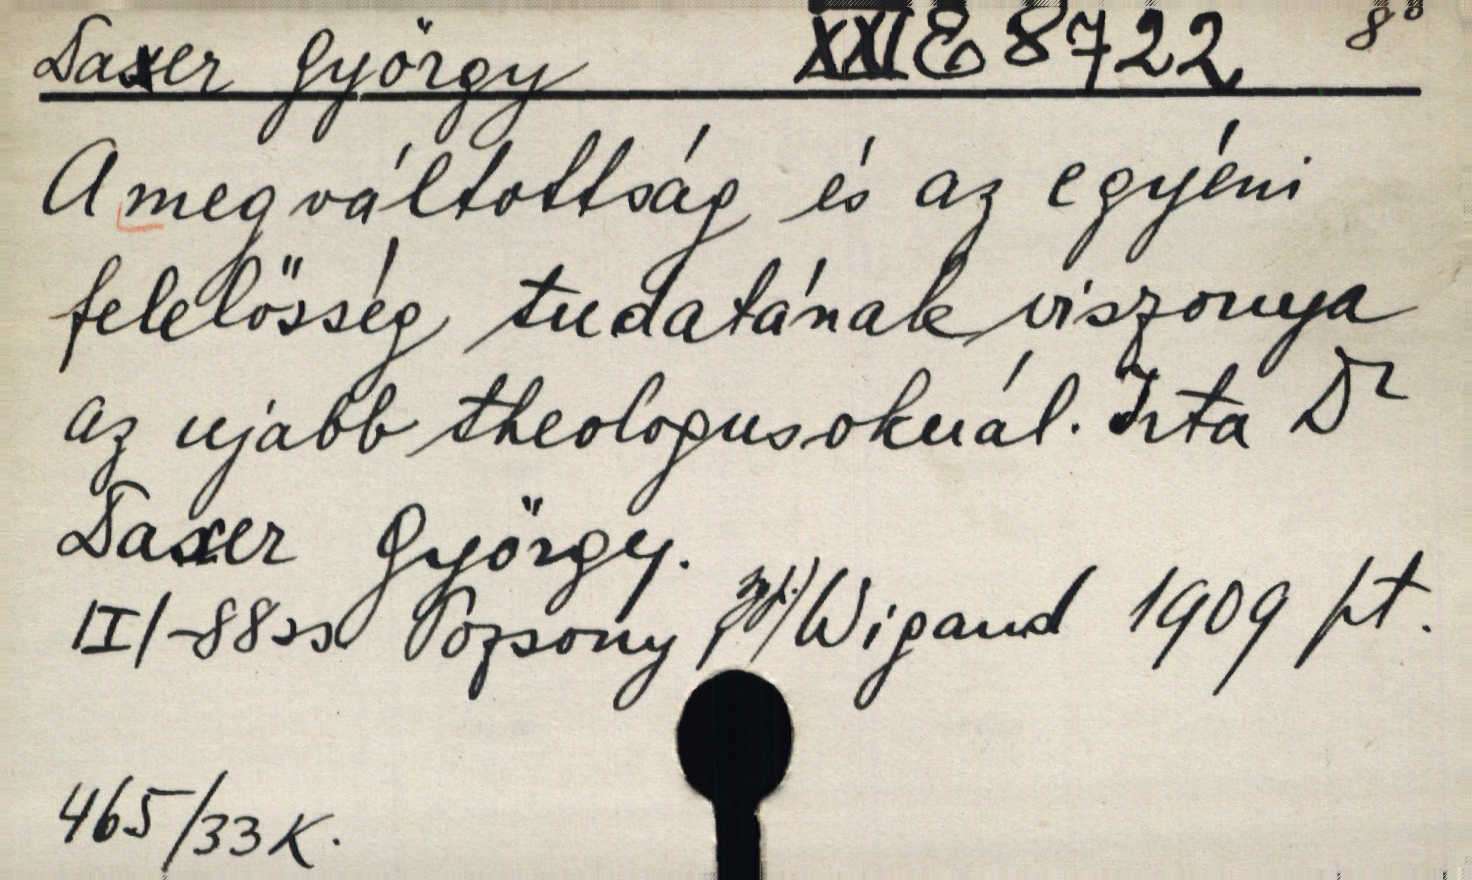 Daxer György XXI E 8722 8°
A megváltottság és az egyéni
felelősség tudatának viszonya
az ujabb theologusoknál. Irta Dr
Daxer György.
|I|-88ss Pozsony, Wigand 1909 pt.
465/33 K.